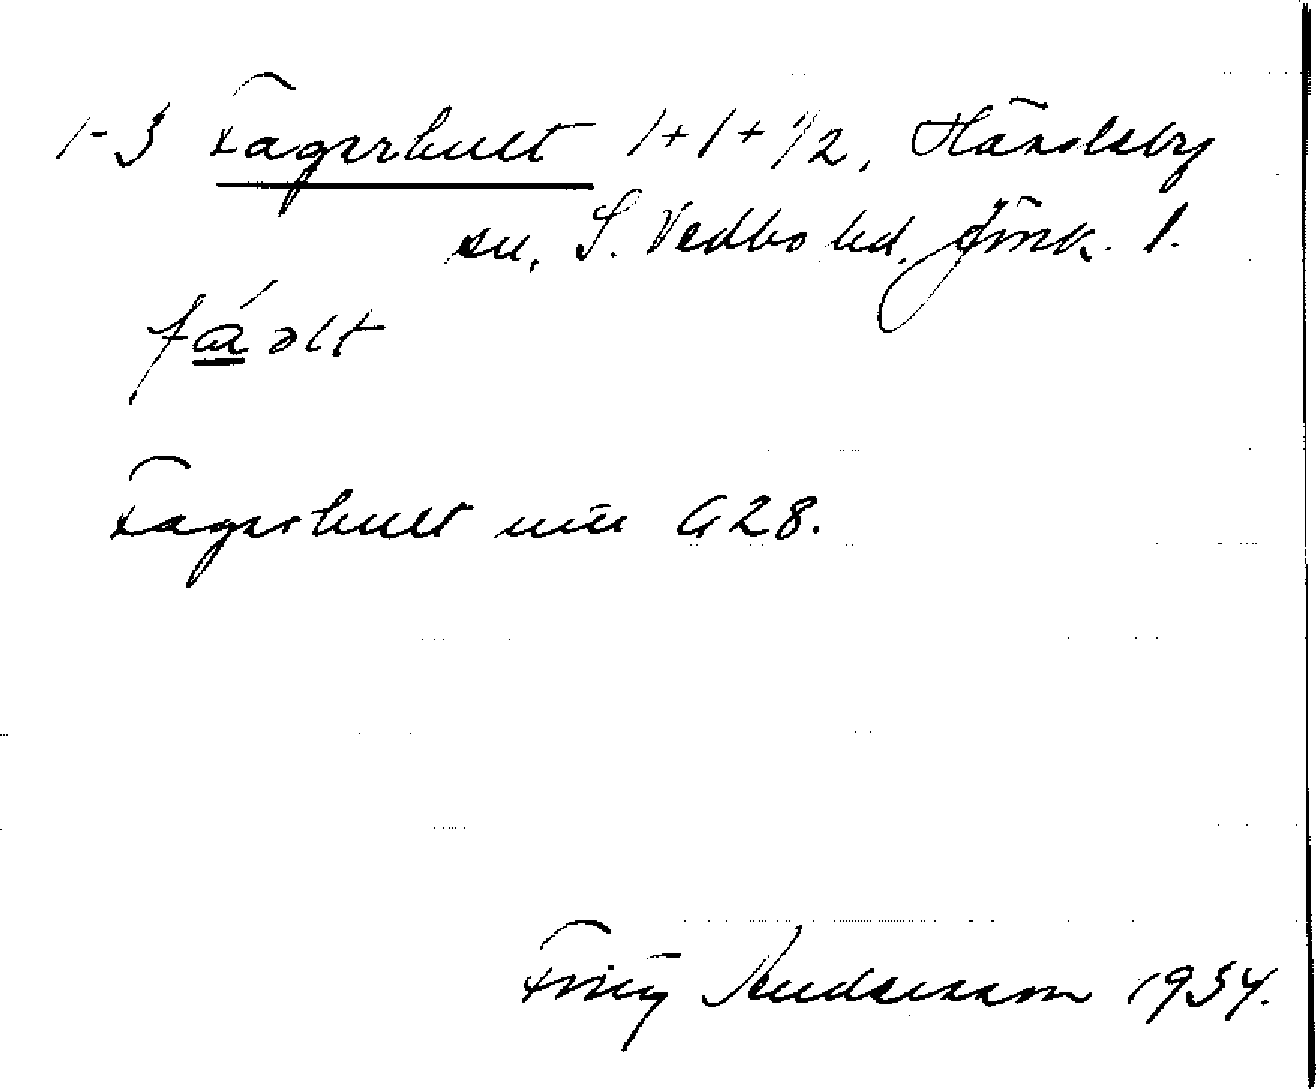 1-3 Fagerhult 1+1+1/2, Häradsby
sn, S. Vedbo hd. Jönk. l.
Fagerhult min G28.
Fritz Andersson 1934.